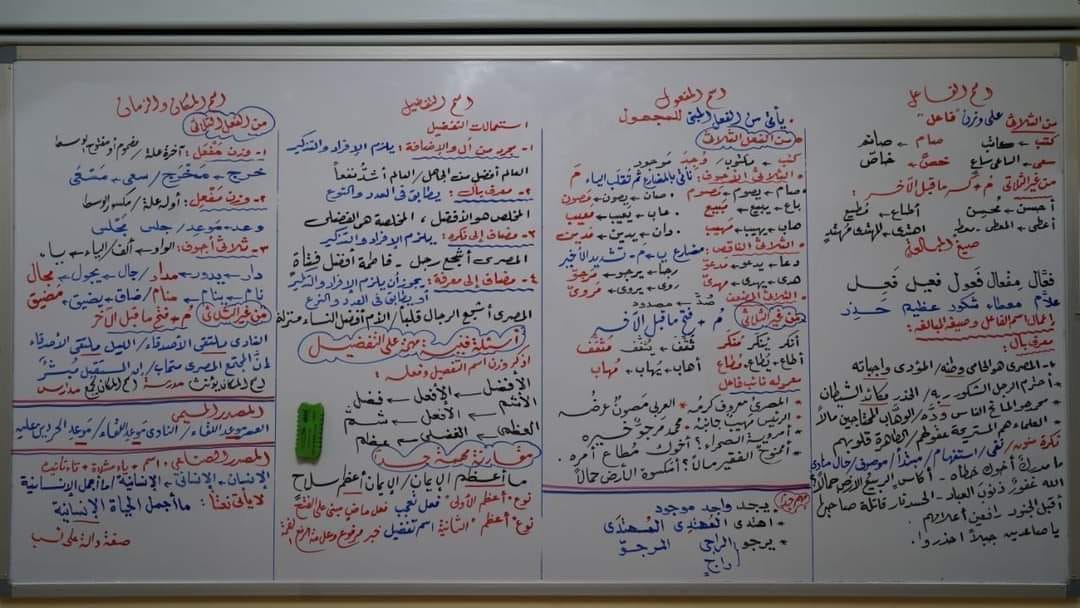 اسم الفاعل
من الثلاثي على وزن "فاعل"
كتب ← كاتب صام ← صائم
سعى ← الساعي/ساعٍ خصّ ← خاصّ
من غير الثلاثي: مُ + كسر ما قبل الآخر:
أحسن ← مُحسِن أطاع ← مُطيع
أعطى ← المعطي/معطٍ اهتدى ← المهتدي/مهتدٍ
صيغ المبالغة
فعَّال مِفْعال فَعول فعيل فَعِل
علّام معطاء شكور عظيم حَذِر
إعمال اسم الفاعل وصيغة المبالغة:
معرف بأل:
المصري هو الحامي وطنَه/ المؤدي واجباته
نكرة منون/ نفي/ استفهام/ مبتدأ/ موصوف/ حال/ منادى
الله غفورٌ ذنوبَ العباد
أقبل الجنود رافعين أعلامهم
يا صاعدين جبلاً احذروا.
اسم المفعول
يأتي من الفعل المبني للمجهول
من الفعل الثلاثي
كتب ← مكتوب/ وُجِدَ ← موجود
الثلاثي الأجوف: نأتي بالمضارع ثم نقلب الياء مَ
صام ← يصوم ← مَصوم صان ← يصون ← مَصون
باع ← يبيع ← مَبيع عاب ← يعيب ← مَعيب
هاب ← يهيب ← مَهيب دان ← يدين ← مَدين
الثلاثي الناقص: مضارع بـ مَ + تشديد الأخير
دعا ← يدعو ← مدعوّ رجا ← يرجو ← مرجوّ
هدى ← يهدي ← مهديّ روى ← يروي ← مرويّ
الثلاثي المضعف صدّ ← مصدود
من غير الثلاثي مُ + فتح ما قبل الآخر
أنكر ← يُنكر ← مُنكَر ثقَّف ← يُثقَّف ← مُثقَّف
أطاع ← يُطاع ← مُطاع أهاب ← يُهاب ← مُهاب
معموله نائب فاعل
المصريّ معروف كرمُه * العربي مَصونٌ عرضُه
الرئيس مهيب جانبه. محمد مرجوٌّ خيره
أمروية الصحراء؟ أخوك مُطاع أمره.
أممنوح الفقير مالاً؟ أمكسوة الأرض جمالاً؟
مهم جداً
يجد واجد موجود
اهتدى المهتدِي المهتدَى
يرجو الراجي المرجوّ
راجٍ
اسم التفضيل
استعمالات التفضيل
١- مجرد من أل والإضافة: يلزم الإفراد والتذكير
العالم أفضل من الجاهل/ العالم أشد نفعاً
٢- معرف بأل: يطابق في العدد والنوع
المخلص هو الأفضل، المخلصة هي الفضلى
٣- مضاف إلى نكرة: يلزم الإفراد والتذكير
المصري أشجع رجل - فاطمة أفضل فتاة
٤- مضاف إلى معرفة: يجوز أن يلزم الإفراد والتذكير
أو يطابق في العدد والنوع
المصري أشجع الرجال قلباً/ الأم أفضل النساء منزلة
أسئلة فنية مهمة على التفضيل
اذكر وزن اسم التفضيل وفعله:
الأفضل ← الأفعل ← فضل
الأشمّ ← الأفعل ← شمّ
العظمى ← الفُعلى ← عظم
مقارنة مهمة جداً
ما أعظمَ الإيمان/ الإيمان أعظمُ سلاح
نوع "أعظم" الأولى فعل تعجب فعل ماضٍ مبني على الفتح
نوع "أعظم" الثانية اسم تفضيل خبر مرفوع وعلامة الرفع الضمة
اسم المكان والزمان
من الفعل الثلاثي
١- وزن مَفْعَل: آخره علة/ مضموم أو مفتوح الوسط
خرج ← مَخْرَج/ سعى ← مَسْعَى
٢- وزن مَفْعِل: أوله علة/ مكسور الوسط
وعد ← مَوعِد/ جلس ← مَجْلِس
٣- ثلاثي أجوف: الواو ← ألف/ الياء ← ياء.
دار ← يدور ← مدار/ جال ← يجول ← مجال
نام ← ينام ← منام/ ضاق ← يضيق ← مَضيق
من غير الثلاثي مُ + فتح ما قبل الآخر
النادي ملتقى الأصدقاء/ الليل ملتقى الأصدقاء
المصدر الميمي
العصر موعد اللقاء/ النادي موعد اللقاء/
المصدر الصناعي: اسم + ياء مشددة + تاء تأنيث
الإنسان ← الإنساني ← الإنسانية/ ما أجمل الإنسانية
لا يأتي نعتاً: ما أجمل الحياة الإنسانية
صفة دالة على نسب